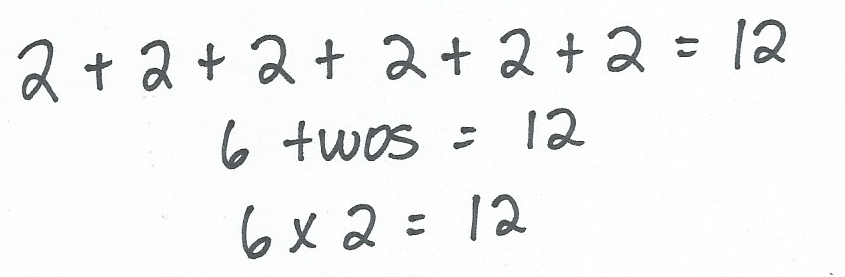 2 + 2 + 2 + 2 + 2 + 2 = 12
6 twos = 12
6 x 2 = 12